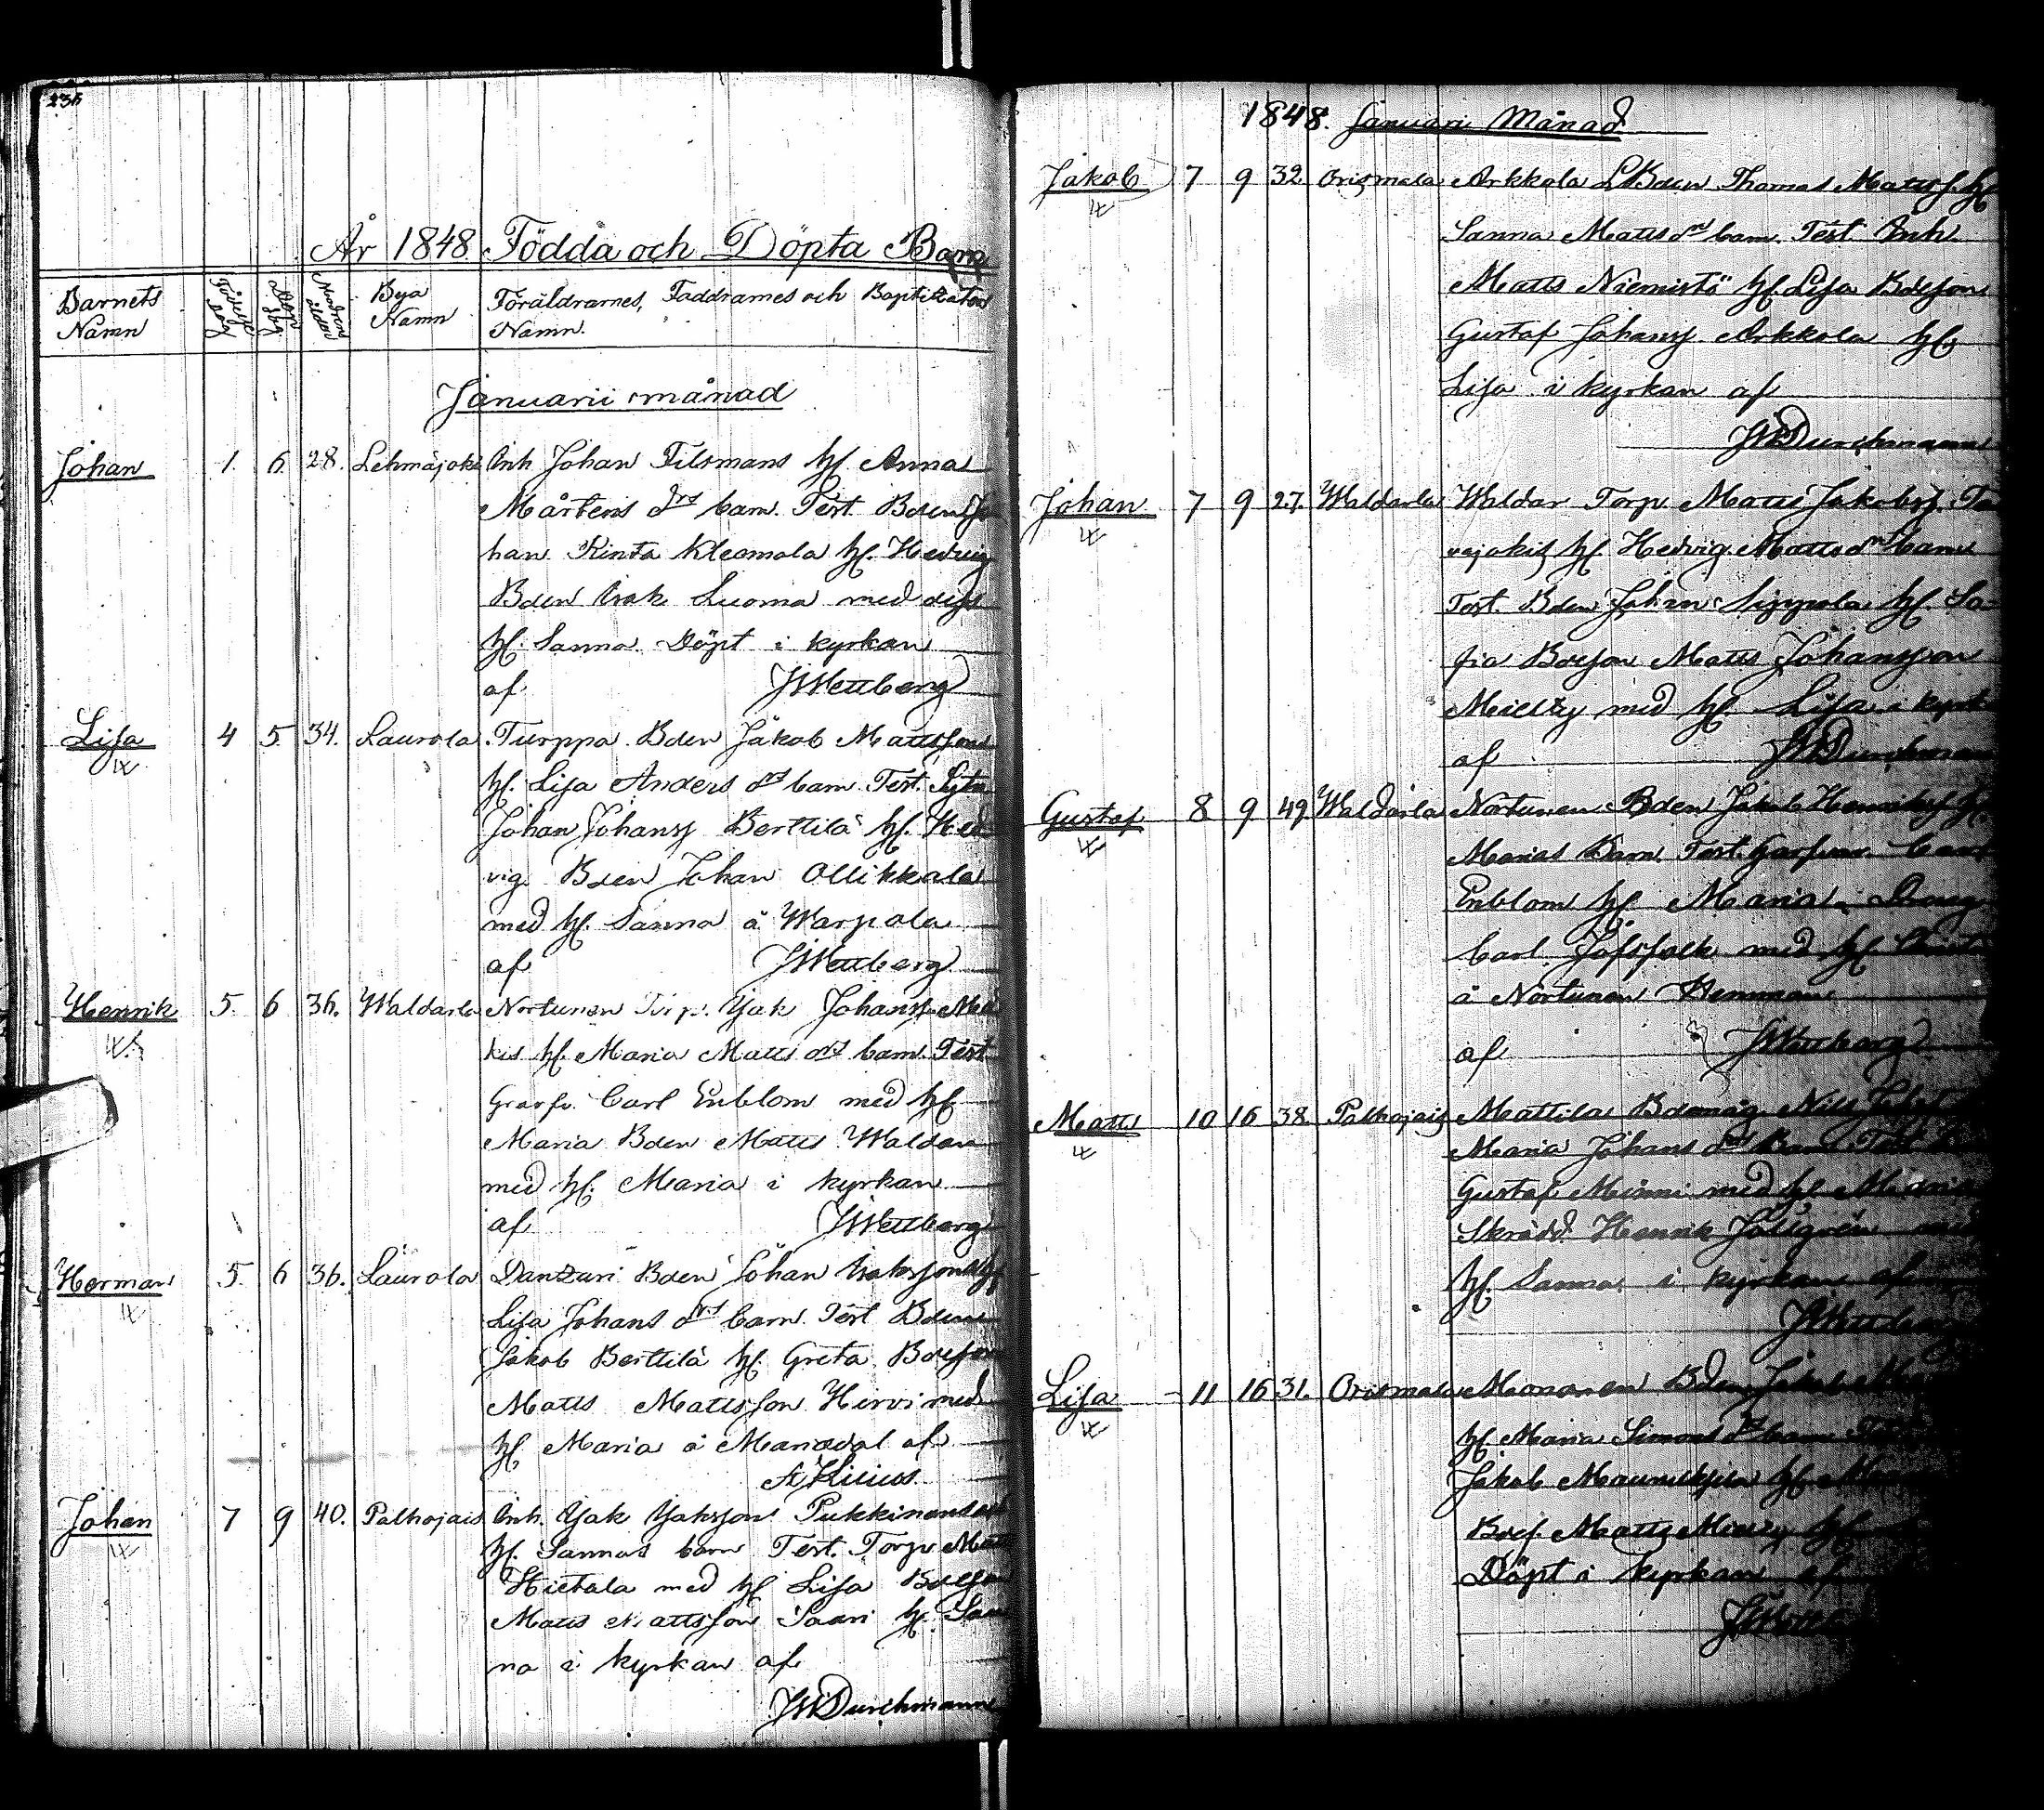 236
År 1848 Födda och Döpta Barn
Barnets Namn
Födelse dag
Dop dag
Modrens ålder
Bya Namn
Föräldrarnes, Faddrarnes och Baptizators Namn.
Januarii månad
Johan 1. 6. 28. Lehmäjoki Inh Johan Tilsmans hf. Anna
Mårtens drs barn. Test. Bden Jo
han Rinta Kleemola hf. Hedvig
Bden Isak Luoma med dess
hf. Sanna Döpt i kyrkan
af JWettberg
Lisa 4 5 34. Laurola Turppa Bden Jakob Mattssons
hf. Lisa Anders drs barn. Test.
Johan Johanss Berttilä hf. Hed
vig. Bden Johan Ollikkala
med hf. Sanna å Warpola
af JWettberg
Henrik 5. 6 36. Waldarla Nortunen Torp. Isak Johanss.
kis hf. Maria Matts drs barn. Test
Garfv. Carl Enblom med hf
Maria Bden Matts Waldari
med hf. Maria i kyrkan
af JWettberg
Herman 5. 6 36. Laurola Danzari Bden Johan Isakssons hf
Lisa Johans drs barn. Test Bden
Jakob Berttilä hf. Greta Bdesson
Matts Mattsson Hirvi med
hf Maria å Mariedal af
Johan 7 9 40. Palhojais Inh. Isak Isakssons Pukkinens och
hf. Sannas barn Test. Torp Matts
Hietala med hf Lisa Bdesson
Matts Mattsson Saari hf. San
na i kyrkan af
JWDurchmann
1848. Januari Månad
Jakob 7 9 32 Orismala Arkkola LBden Thomas Mattss. hf
Sanna Matts drs barn. Test. Inh.
Matts Niemistö hf. Lisa Bdesson
Gustaf Johanss Arkkola hf.
Lisa i kyrkan af
JWDurchmann
Johan 7 9 27. Waldarla Waldar Torp Matts Jakobss.
hf. Hedvig Matts drs barn
Test. Bden Johan Sippola hf. So
fia Bdesson Matts Johansson
Mielty med hf. Lisa i kyrk
af JWDurchman
Gustaf 8 9 49 Waldarla Nortunen Bden Jakob Henrikss hf.
Marias Barn. Test. Garfvar. Carl
Enblom hf Maria. Dräng
Carl Jofsfolk med hf.
å Nortunen Hemman
af JWettberg
Matts 10 16 38. Palhojais Mattila Bdemåg Nils
Maria Johans drs Barn Test
Gustaf Minni med hf Maria
Skrädd. Henrik
hf. Sanna i kyrkan af
JWettberg
Lisa 11 16 31. Orismala Mononen Bden Jakob
hf. Maria Simons drs barn
Jakob hf.
Bdes. Matts Mielty hf
Döpt i kyrkan af